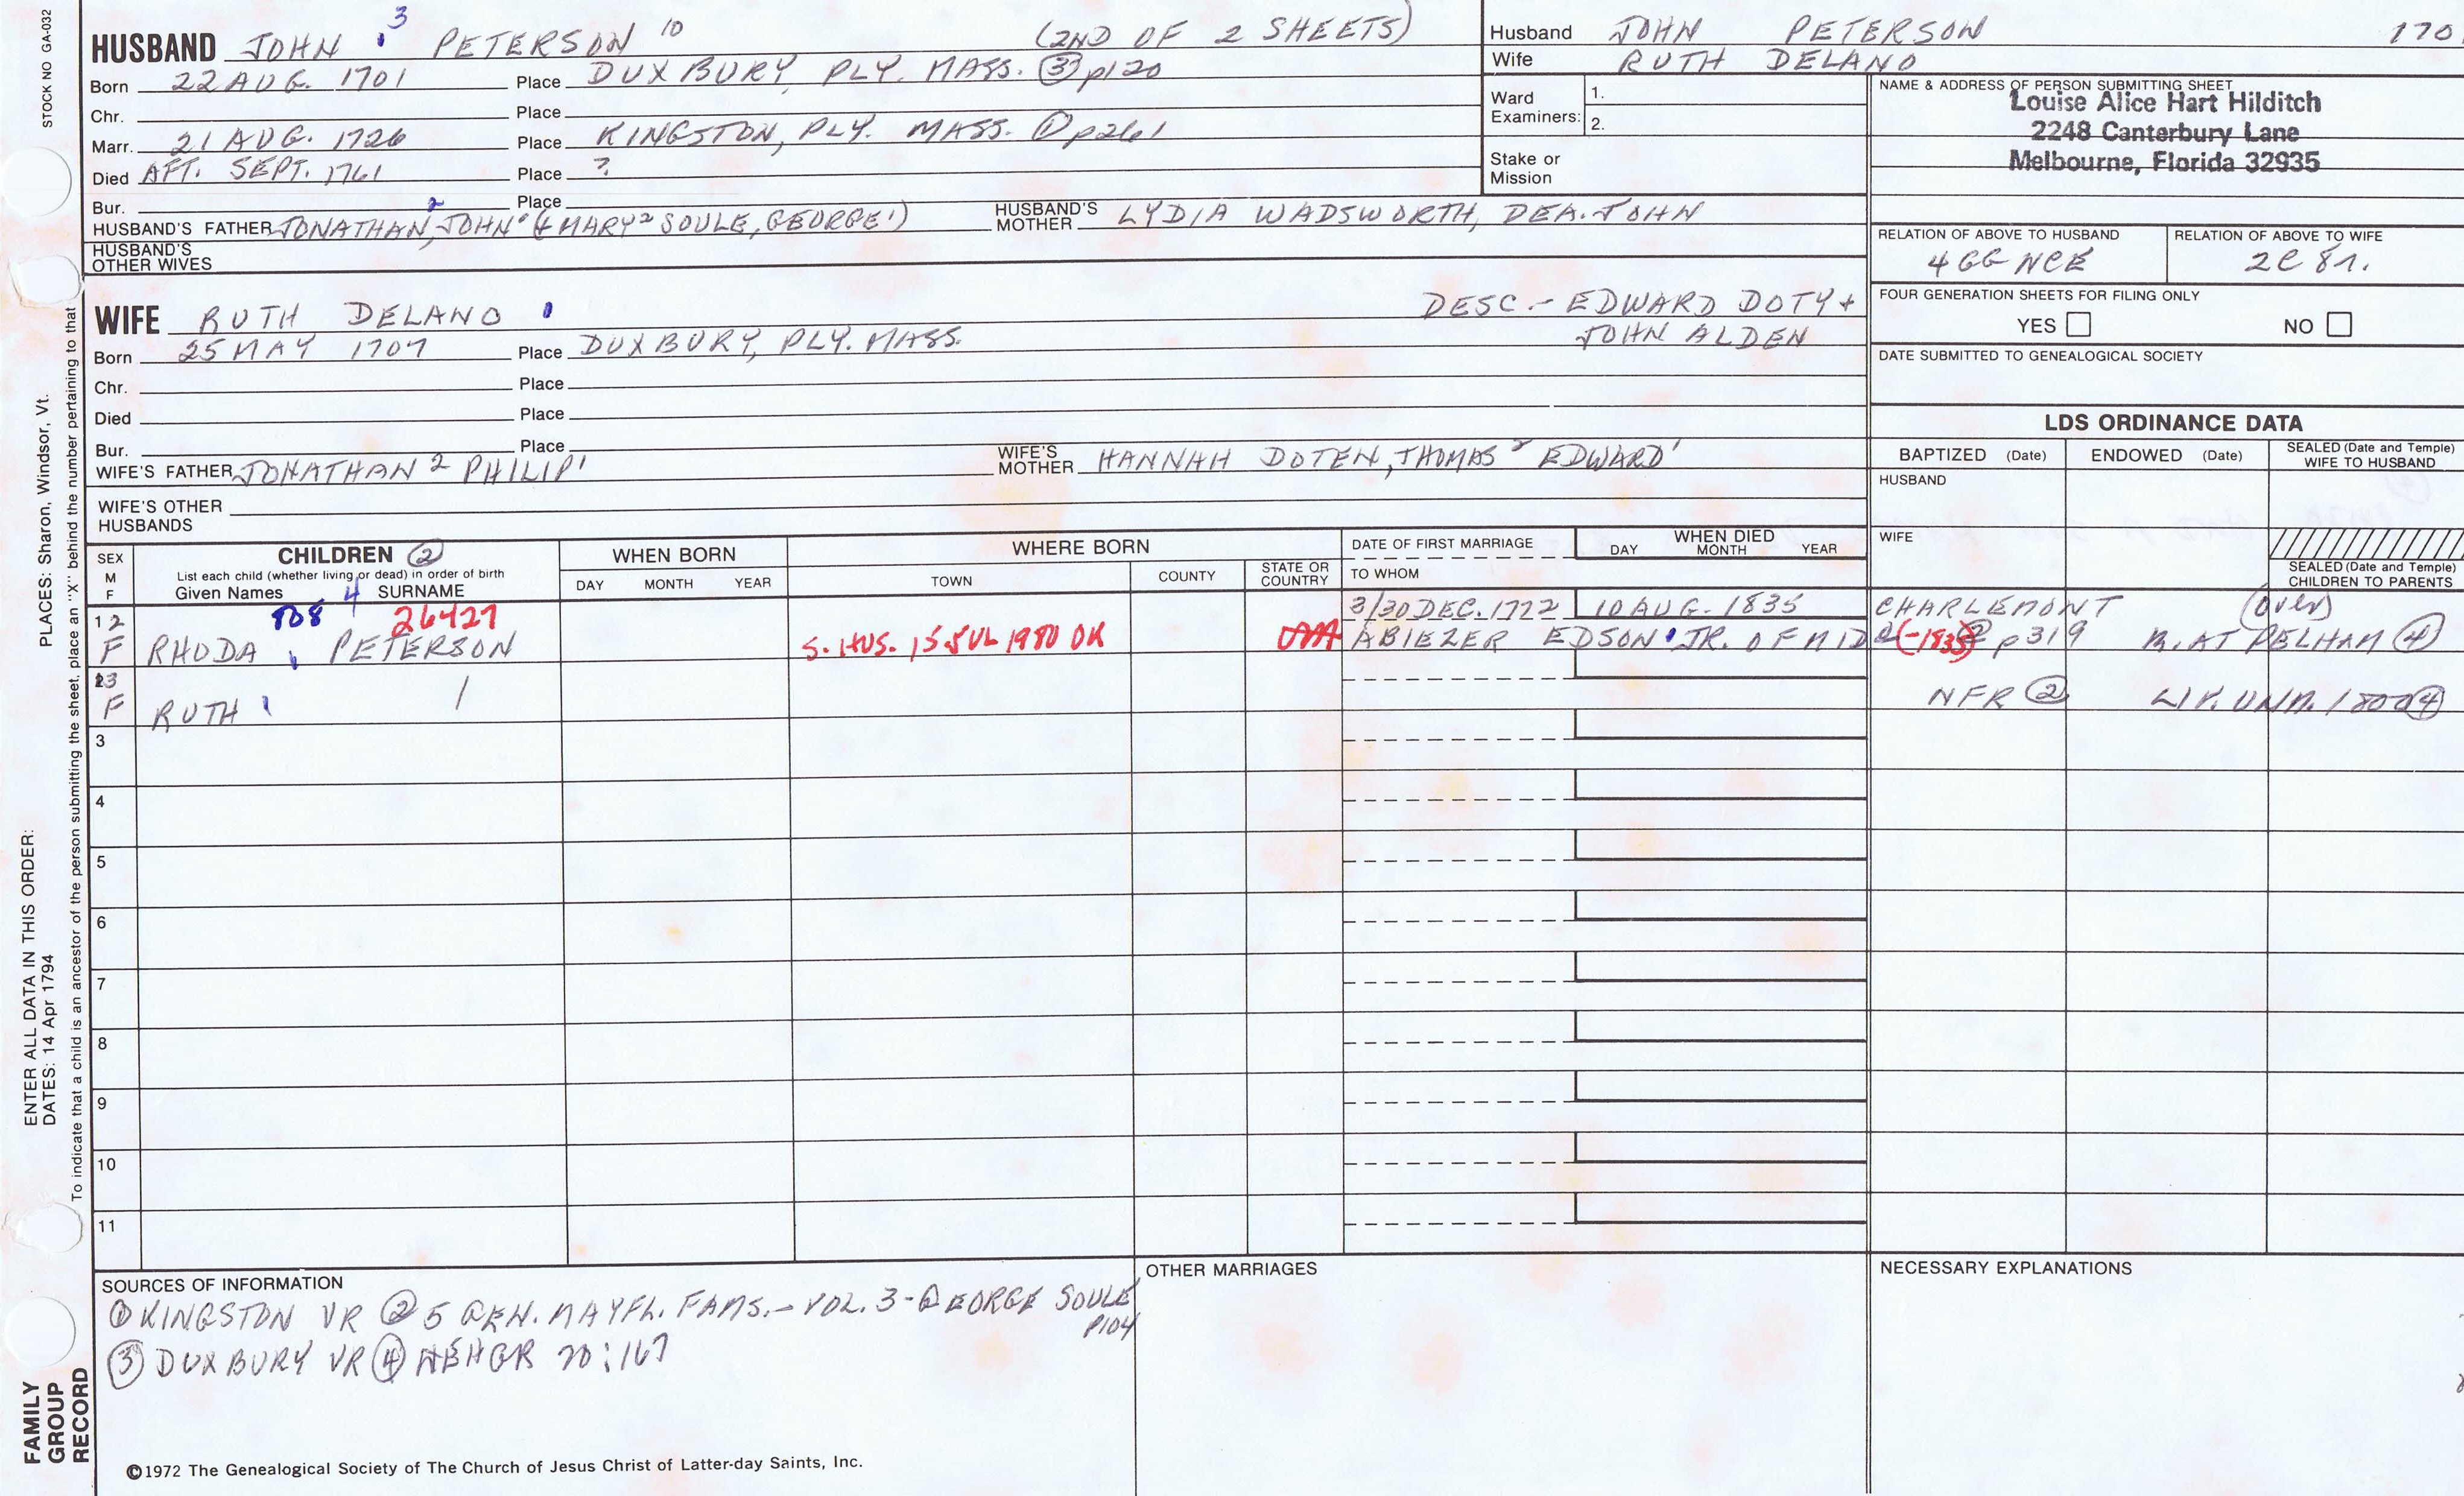 STOCK NO GA-032
HUSBAND JOHN 3 PETERSON 10 (2ND OF 2 SHEETS)
Born 22 AUG. 1701 Place DUXBURY, PLY. MASS. ③ p120
Chr. Place
Marr. 21 AUG. 1726 Place KINGSTON, PLY. MASS. ① p261
Died AFT. SEPT. 1761 Place ?
Bur. Place
HUSBAND'S FATHER JONATHAN,2 JOHN (& MARY2 SOULE, GEORGE1) HUSBAND'S MOTHER LYDIA WADSWORTH, DEA. JOHN
HUSBAND'S OTHER WIVES
Husband JOHN PETERSON 170
Wife RUTH DELANO
Ward Examiners: 1.
2.
Stake or Mission
NAME & ADDRESS OF PERSON SUBMITTING SHEET
Louise Alice Hart Hilditch
2248 Canterbury Lane
Melbourne, Florida 32935
RELATION OF ABOVE TO HUSBAND RELATION OF ABOVE TO WIFE
4 GG NCE 2C 8r.
FOUR GENERATION SHEETS FOR FILING ONLY
YES NO
DATE SUBMITTED TO GENEALOGICAL SOCIETY
WIFE RUTH DELANO DESC.- EDWARD DOTY +
JOHN ALDEN
Born 25 MAY 1707 Place DUXBURY, PLY. MASS.
Chr. Place
Died Place
Bur. Place
WIFE'S FATHER JONATHAN2 PHILIP1 WIFE'S MOTHER HANNAH DOTEN, THOMAS2 EDWARD1
WIFE'S OTHER HUSBANDS
LDS ORDINANCE DATA
BAPTIZED (Date) ENDOWED (Date) SEALED (Date and Temple) WIFE TO HUSBAND
HUSBAND
WIFE
SEALED (Date and Temple) CHILDREN TO PARENTS
SEX M F
CHILDREN ②
List each child (whether living or dead) in order of birth
Given Names SURNAME
WHEN BORN
DAY MONTH YEAR
WHERE BORN
TOWN COUNTY STATE OR COUNTRY
DATE OF FIRST MARRIAGE
TO WHOM
WHEN DIED
DAY MONTH YEAR
4 26427 3/30 DEC. 1772 10 AUG. 1835 CHARLEMONT (over)
12 F RHODA PETERSON S. HUS. 15 JUL 1980 OK ABIEZER EDSON JR. OF MID (-1835) p319 R. AT PELHAM ④
13 F RUTH NFR ② LIV. UNM. 1800 ④
3
4
5
6
7
8
9
10
11
SOURCES OF INFORMATION
① KINGSTON VR ② 5 GEN. MAYFL. FAMS.- VOL. 3 - GEORGE SOULE
P104
③ DUXBURY VR ④ NEHGR 70:167
OTHER MARRIAGES
NECESSARY EXPLANATIONS
©1972 The Genealogical Society of The Church of Jesus Christ of Latter-day Saints, Inc.
ENTER ALL DATA IN THIS ORDER:
DATES: 14 Apr 1794
PLACES: Sharon, Windsor, Vt.
To indicate that a child is an ancestor of the person submitting the sheet, place an "X" behind the number pertaining to that
FAMILY GROUP RECORD